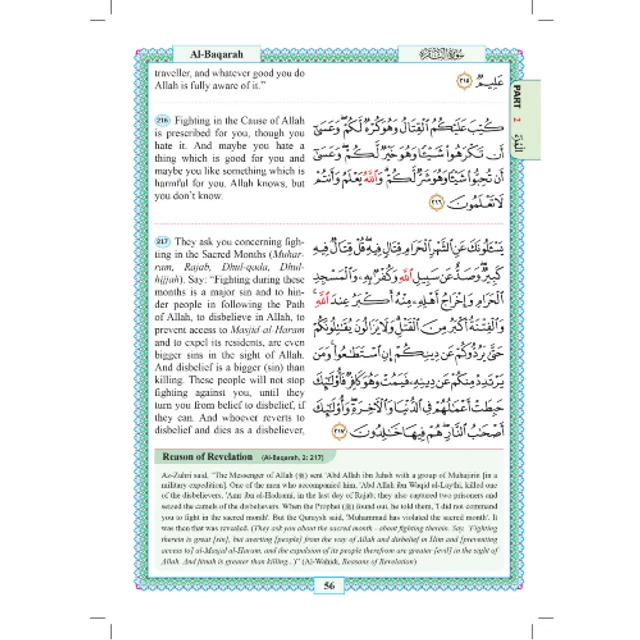 Al-Baqarah
سُورَةُ الْبَقَرَةِ
PART 2 الجُزْء
traveller, and whatever good you do
Allah is fully aware of it.”
عَلِيمٌ ٢١٥
216 Fighting in the Cause of Allah
is prescribed for you, though you
hate it. And maybe you hate a
thing which is good for you and
maybe you like something which is
harmful for you. Allah knows, but
you don’t know.
كُتِبَ عَلَيْكُمُ ٱلْقِتَالُ وَهُوَ كُرْهٌ لَّكُمْ وَعَسَىٰٓ
أَن تَكْرَهُوا۟ شَيْـًٔا وَهُوَ خَيْرٌ لَّكُمْ وَعَسَىٰٓ
أَن تُحِبُّوا۟ شَيْـًٔا وَهُوَ شَرٌّ لَّكُمْ وَٱللَّهُ يَعْلَمُ وَأَنتُمْ
لَا تَعْلَمُونَ ٢١٦
217 They ask you concerning figh-
ting in the Sacred Months (Muhar-
ram, Rajab, Dhul-qada, Dhul-
hijjah). Say: “Fighting during these
months is a major sin and to hin-
der people in following the Path
of Allah, to disbelieve in Allah, to
prevent access to Masjid al-Haram
and to expel its residents, are even
bigger sins in the sight of Allah.
And disbelief is a bigger (sin) than
killing. These people will not stop
fighting against you, until they
turn you from belief to disbelief, if
they can. And whoever reverts to
disbelief and dies as a disbeliever,
يَسْـَٔلُونَكَ عَنِ ٱلشَّهْرِ ٱلْحَرَامِ قِتَالٍ فِيهِ قُلْ قِتَالٌ فِيهِ
كَبِيرٌ وَصَدٌّ عَن سَبِيلِ ٱللَّهِ وَكُفْرٌۢ بِهِۦ وَٱلْمَسْجِدِ
ٱلْحَرَامِ وَإِخْرَاجُ أَهْلِهِۦ مِنْهُ أَكْبَرُ عِندَ ٱللَّهِ
وَٱلْفِتْنَةُ أَكْبَرُ مِنَ ٱلْقَتْلِ وَلَا يَزَالُونَ يُقَـٰتِلُونَكُمْ
حَتَّىٰ يَرُدُّوكُمْ عَن دِينِكُمْ إِنِ ٱسْتَطَـٰعُوا۟ وَمَن
يَرْتَدِدْ مِنكُمْ عَن دِينِهِۦ فَيَمُتْ وَهُوَ كَافِرٌ فَأُو۟لَـٰٓئِكَ
حَبِطَتْ أَعْمَـٰلُهُمْ فِى ٱلدُّنْيَا وَٱلْـَٔاخِرَةِ وَأُو۟لَـٰٓئِكَ
أَصْحَـٰبُ ٱلنَّارِ هُمْ فِيهَا خَـٰلِدُونَ ٢١٧
Reason of Revelation (Al-Baqarah, 2: 217)
Az-Zuhri said, “The Messenger of Allah (ﷺ) sent 'Abd Allah ibn Jahsh with a group of Muhajirin [in a
military expedition]. One of the men who accompanied him, 'Abd Allah ibn Waqid al-Laythi, killed one
of the disbelievers, 'Amr ibn el-Hadrami, in the last day of Rajab; they also captured two prisoners and
seized the camels of the disbelievers. When the Prophet (ﷺ) found out, he told them, 'I did not command
you to fight in the sacred month'. But the Quraysh said, 'Muhammad has violated the sacred month'. It
was then that was revealed: (They ask you about the sacred month - about fighting therein. Say, 'Fighting
therein is great [sin], but averting [people] from the way of Allah and disbelief in Him and [preventing
access to] al-Masjid al-Haram, and the expulsion of its people therefrom are greater [evil] in the sight of
Allah. And fitnah is greater than killing...)” (Al-Wahidi, Reasons of Revelation)
56